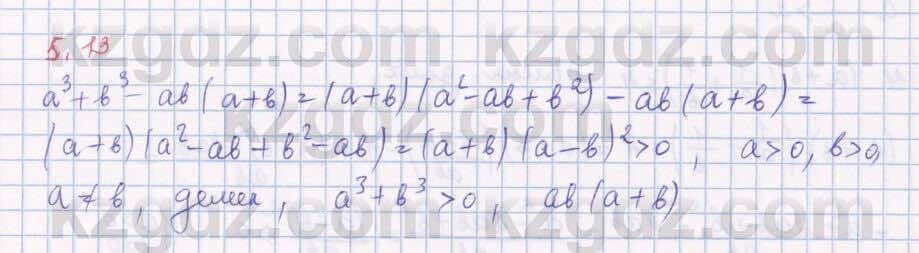 5.13
a³+b³- ab(a+b)=(a+b)(a²-ab+b²)-ab(a+b)=
(a+b)(a²-ab+b²-ab)=(a+b)(a-b)²>0, a>0, b>0,
a≠b, демек, a³+b³>0, ab(a+b)
kzgdz.com kzgdz.com
kzgdz.com kzgdz.com
kzgdz.com kzgdz.com